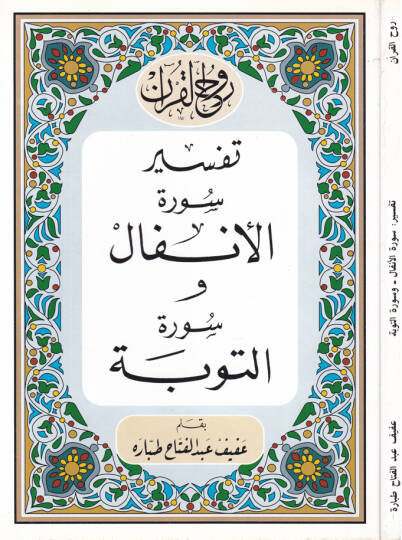 روح القرآن
تفسير
سُورة
الأنفال
و
سُورة
التوبَة
بقلم
عَفيف عَبد الفتّاح طبّاره
روح القرآن
تفسير: سورة الأنفال - وسورة التوبة
عفيف عبد الفتاح طبارة